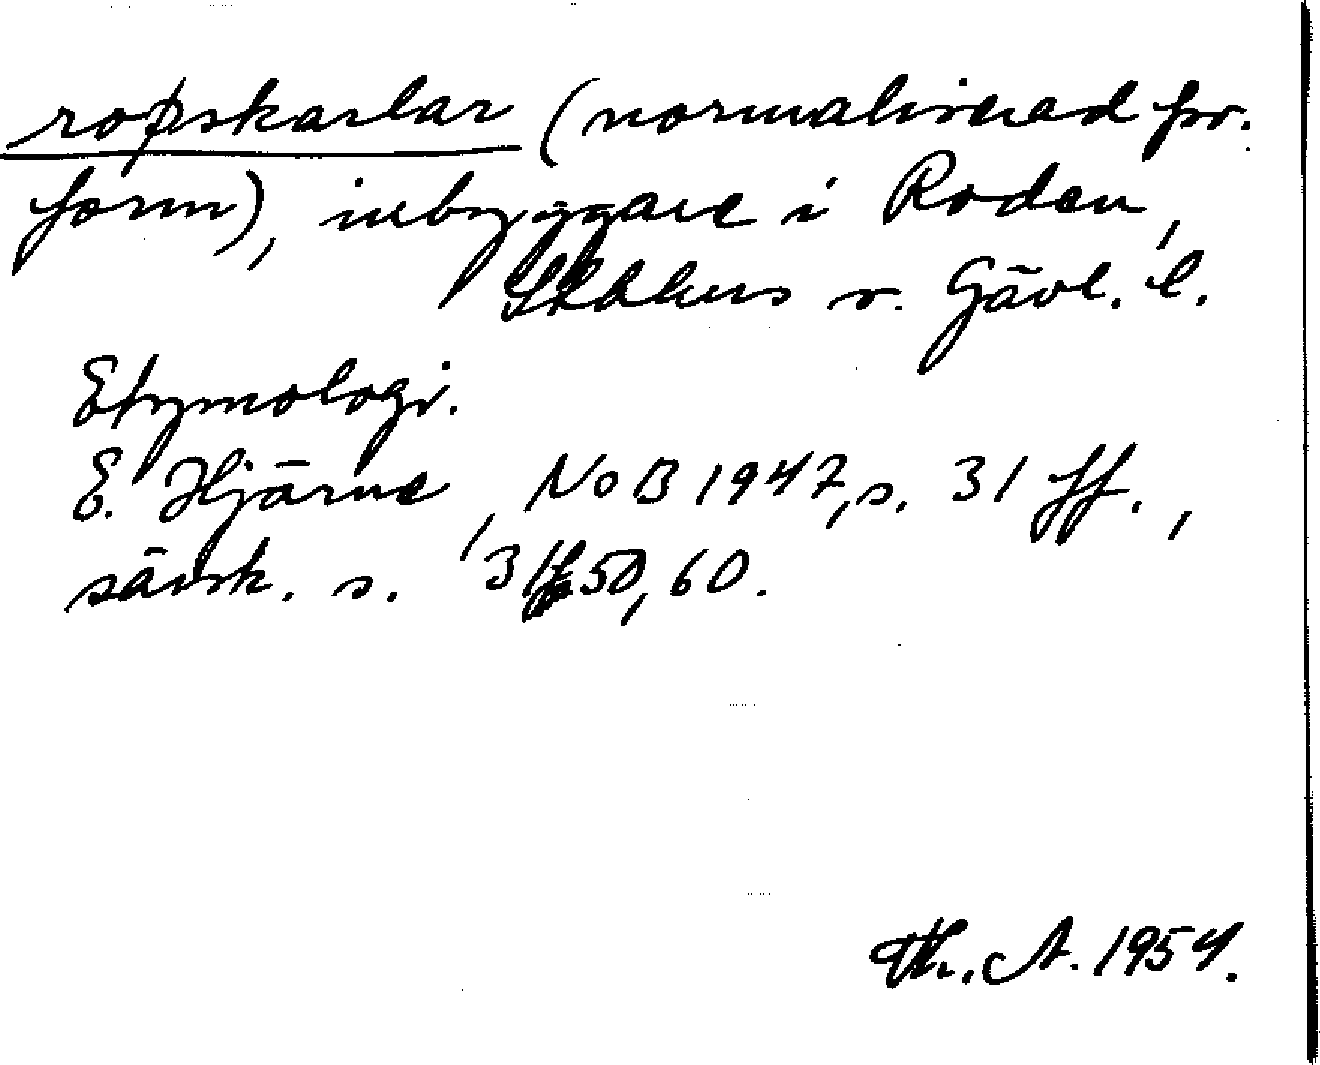 roþskarlar (normaliserad fsv.
form), inbyggare i Roden,
Sthlms o. Gävl. l.
Etymologi.
E. Hjärne, NoB 1947, s. 31 ff.,
särsk. s. 50, 60.
Th. A. 1954.